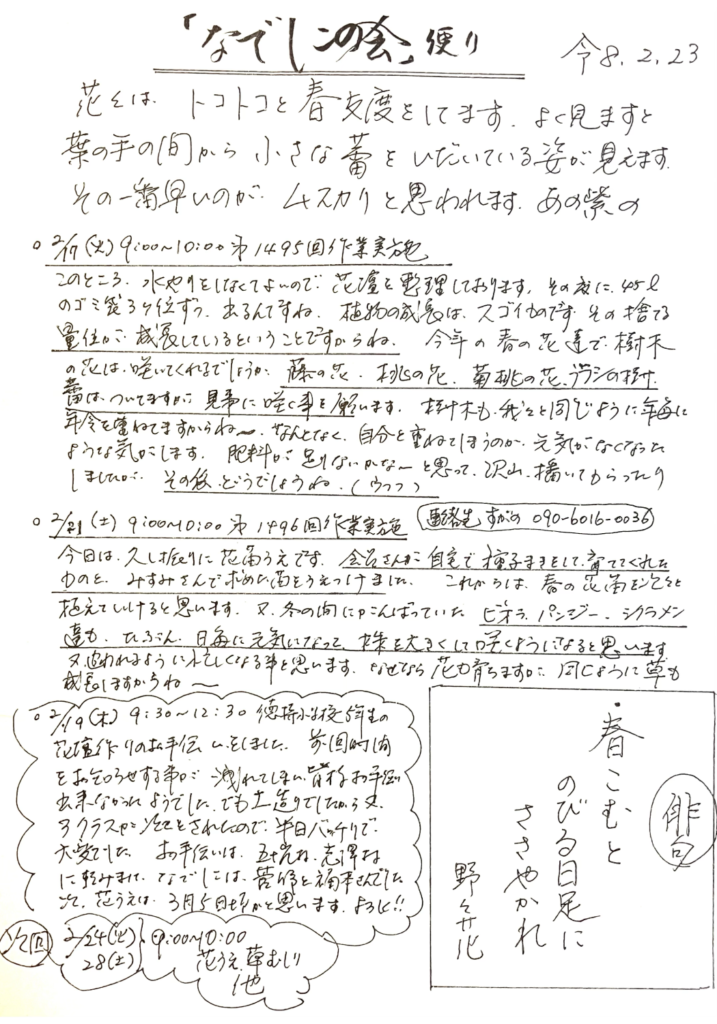 「なでしこの会」便り
令8.2.23
花々は、トコトコと春支度をしてます。よく見ますと
葉の手の間から小さな蕾をいだいている姿が見えます。
その一番早いのが、ムスカリと思われます。あの紫の
○2/17(火)9:00~10:00第1495回作業実施
このところ、水やりをしなくてよいので、花壇を整理しております。その度に、45ℓ
のゴミ袋3ケ位ずつ、出るんですね。植物の成長は、スゴイものです。その捨てる
量位が、成長しているということですからね。今年の春の花達で、樹木
の花は、咲いてくれるでしょうか。藤の花、桃の花、菊桃の花、ブラシの樹、
蕾は、ついてますが、見事に咲く事を願います。樹木も、我々と同じように年毎に
年令を重ねてますからね~、なんとなく、自分と重ねてしまうのか、元気がなくなった
ような気がします。肥料が足りないかな~と思って、沢山、播いてもらったり
しましたが、その後、どうでしょうね。(ウフフ)
○2/21(土)9:00~10:00第1496回作業実施
連絡先 すがの 090-6016-0036
今日は、久し振りに花苗うえです。会名さんが自宅で種子まきをして、育ててくれた
ものと、みすみさんで求めた苗をうえつけました。これからは、春の花苗を次々と
植えていけると思います。又、冬の間にがんばっていた ビオラ、パンジー、シクラメン
達も、たぶん、日毎に元気になって、株を大きくして咲くようになると思います。
又、追われるように忙しくなる事と思います。なぜなら花も育ちますが、同じように草も
成長しますからね~
○2/19(木)9:30~12:30 小学校5年生の
花壇作りのお手伝いをしました。前回時間
をお知らせする事が洩れてしまい、皆様お手伝い
出来なかったようでした。でも土造りでしたから又、
3クラスが次々とされたので、半日バッチリで、
大変でした。お手伝いは、
に なでしこは、菅野と さんでした。
次、花うえは、3月5日頃かと思います。よろしく!!
次回
2/24(火)
28(土)
9:00~10:00
花うえ、草むしり
他
俳句
春こむと
のびる日足に
ささやかれ
野々花